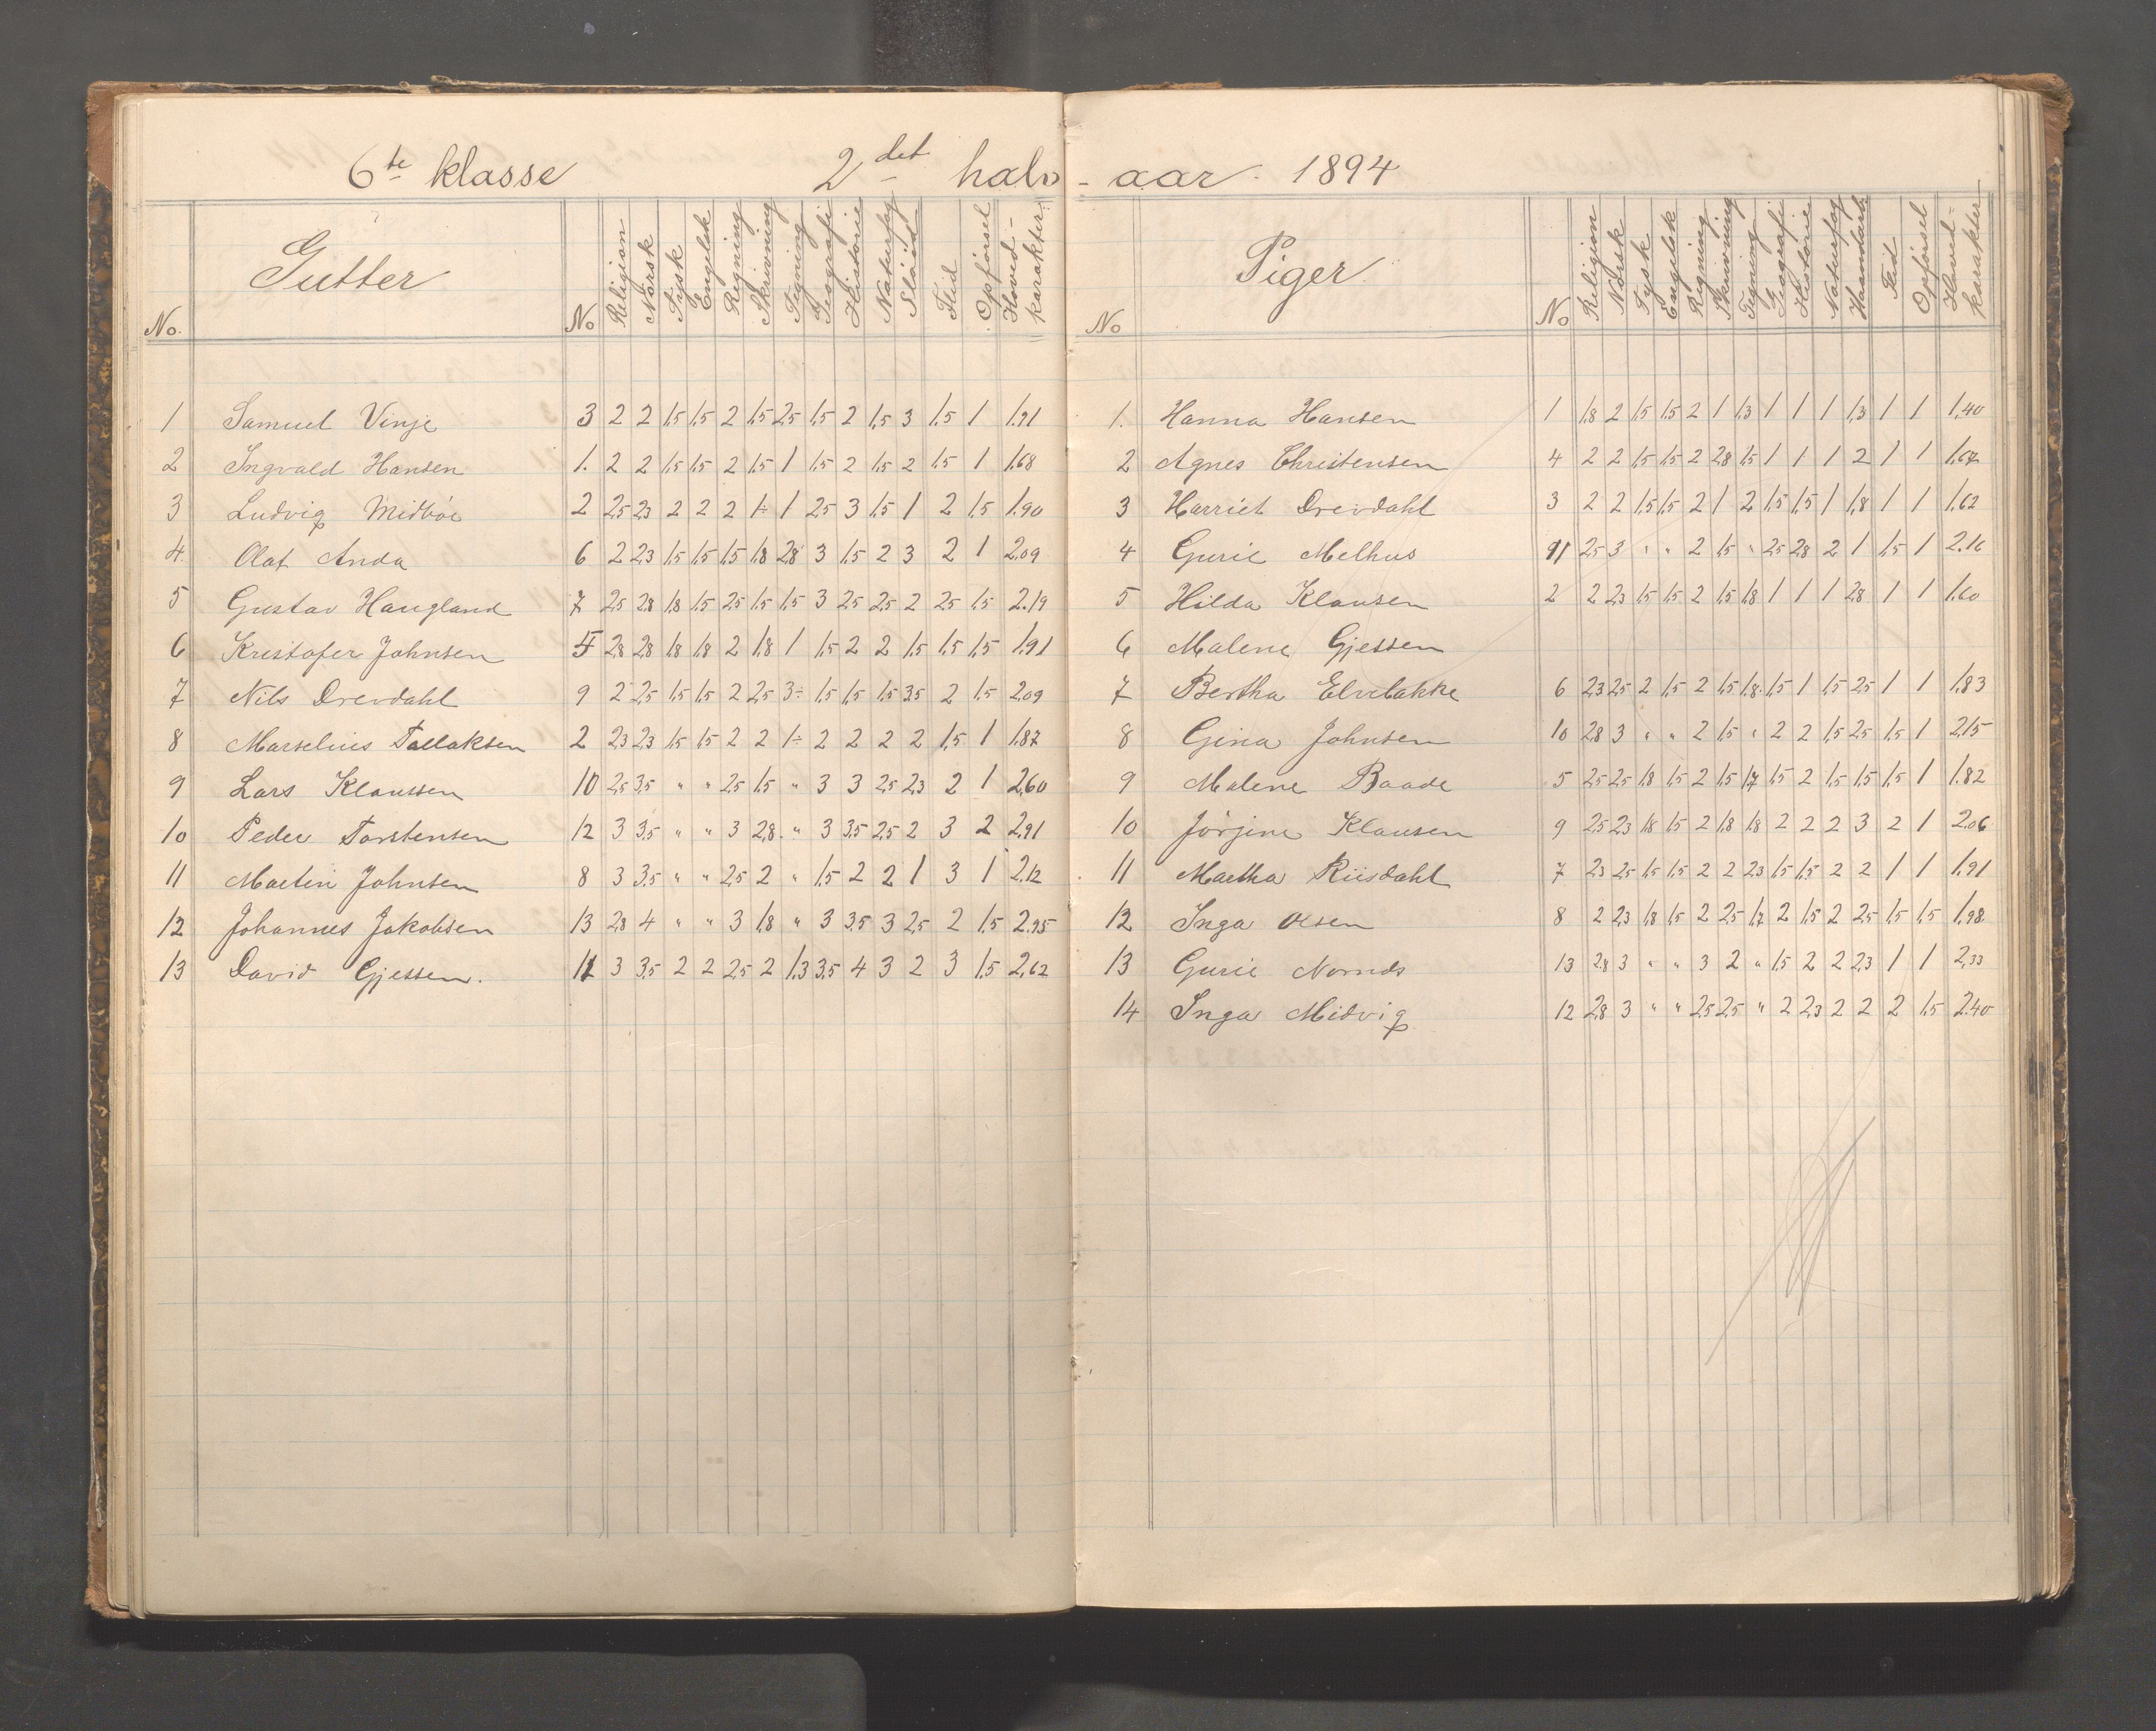 6te klasse 2det halv-aar. 1894
Gutter
No. No Religion Norsk Tysk Engelsk Regning Skrivning Tegning Geografi Historie Naturfag Slöid Flid Opförsel Hoved-karakter.
1 Samuel Vinje 3 2 2 1,5 1,5 2 1,5 2,5 1,5 2 1,5 3 1,5 1 1.91
2 Ingvald Hansen 1. 2 2 1,5 1,5 2 1,5 1 1,5 2 1,5 2 1,5 1 1,68
3 Ludvig Midböe 2 2,5 2,3 2 2 2 1÷ 1 2,5 3 1,5 1 2 1,5 1.90
4. Olaf Anda 6 2 2,3 1,5 1,5 1,5 1,8 2,8 3 1,5 2 3 2 1 2.09
5 Gustav Haugland 7 2,5 2,8 1,8 1,5 2,5 1,5 1,5 3 2,5 2,5 2 2,5 1,5 2.19
6 Kristofer Johnsen 5 2,8 2,8 1,8 1,8 2 1,8 1 1,5 2 2 1,5 1,5 1,5 1,91
7 Nils Drevdahl 9 2 2,5 1,5 1,5 2 2,5 3÷ 1,5 1,5 1,5 3,5 2 1,5 2,09
8 Marselius Tallaksen 2 2,3 2,3 1,5 1,5 2 2 1÷ 2 2 2 2 1,5 1 1,87
9 Lars Klaussen 10 2,5 3,5 " " 2,5 1,5 " 3 3 2,5 2,3 2 1 2,60
10 Peder Torstensen 12 3 3,5 " " 3 2,8 " 3 3,5 2,5 2 3 2 2,91
11 Martin Johnsen 8 3 3,5 " " 2,5 2 " 1,5 2 2 1 3 1 2.12
12 Johannes Jakobsen 13 2,8 4 " " 3 1,8 " 3 3,5 3 2,5 2 1,5 2.95
13 David Gjessen. 11 3 3,5 2 2 2,5 2 1,3 3,5 4 3 2 3 1,5 2,62
Piger
No No Religion Norsk Tysk Engelsk Regning Skrivning Tegning Geografi Historie Naturfag Haandarb Flid Opförsel Hoved-karakter
1. Hanna Hansen 1 1,8 2 1,5 1,5 2 1 1,3 1 1 1 1,3 1 1 1,40
2 Agnes Christensen 4 2 2 1,5 1,5 2 2,8 1,5 1 1 1 2 1 1 1,67
3 Harriet Drevdahl 3 2 2 1,5 1,5 2 1 2 1,5 1,5 1 1,8 1 1 1,62
4 Gurie Melhus 11 2,5 3 " " 2 1,5 " 2,5 2,8 2 1 1,5 1 2.16
5 Hilda Klausen 2 2 2,3 1,5 1,5 2 1,5 1,8 1 1 1 2,8 1 1 1,60
6 Malene Gjessen
7 Bertha Elvebakke 6 2,3 2,5 2 1,5 2 1,5 1,8 1,5 1 1,5 2,5 1 1 1.83
8 Gina Johnsen 10 2,8 3 " " 2 1,5 " 2 2 1,5 2,5 1,5 1 2,15
9 Malene Baade 5 2,5 2,5 1,8 1,5 2 1,5 1,7 1,5 2 1,5 1,5 1,5 1 1.82
10 Jörjine Klausen 9 2,5 2,3 1,8 1,5 2 1,8 1,8 2 2 2 3 2 1 2.06
11 Martha Riisdahl 7 2,3 2,5 1,5 1,5 2 2 2,3 1,5 1,5 2 2 1 1 1,91
12 Inga Olsen 8 2 2,3 1,8 1,5 2 2,5 1,7 2 1,5 2 2,5 1,5 1,5 1,98
13 Gurie 13 2,8 3 " " 3 2 " 1,5 2 2 2,3 1 1 2,33
14 Inga Midvig 12 2,8 3 " " 2,5 2,5 " 2 2,3 2 2 2 1,5 2.40